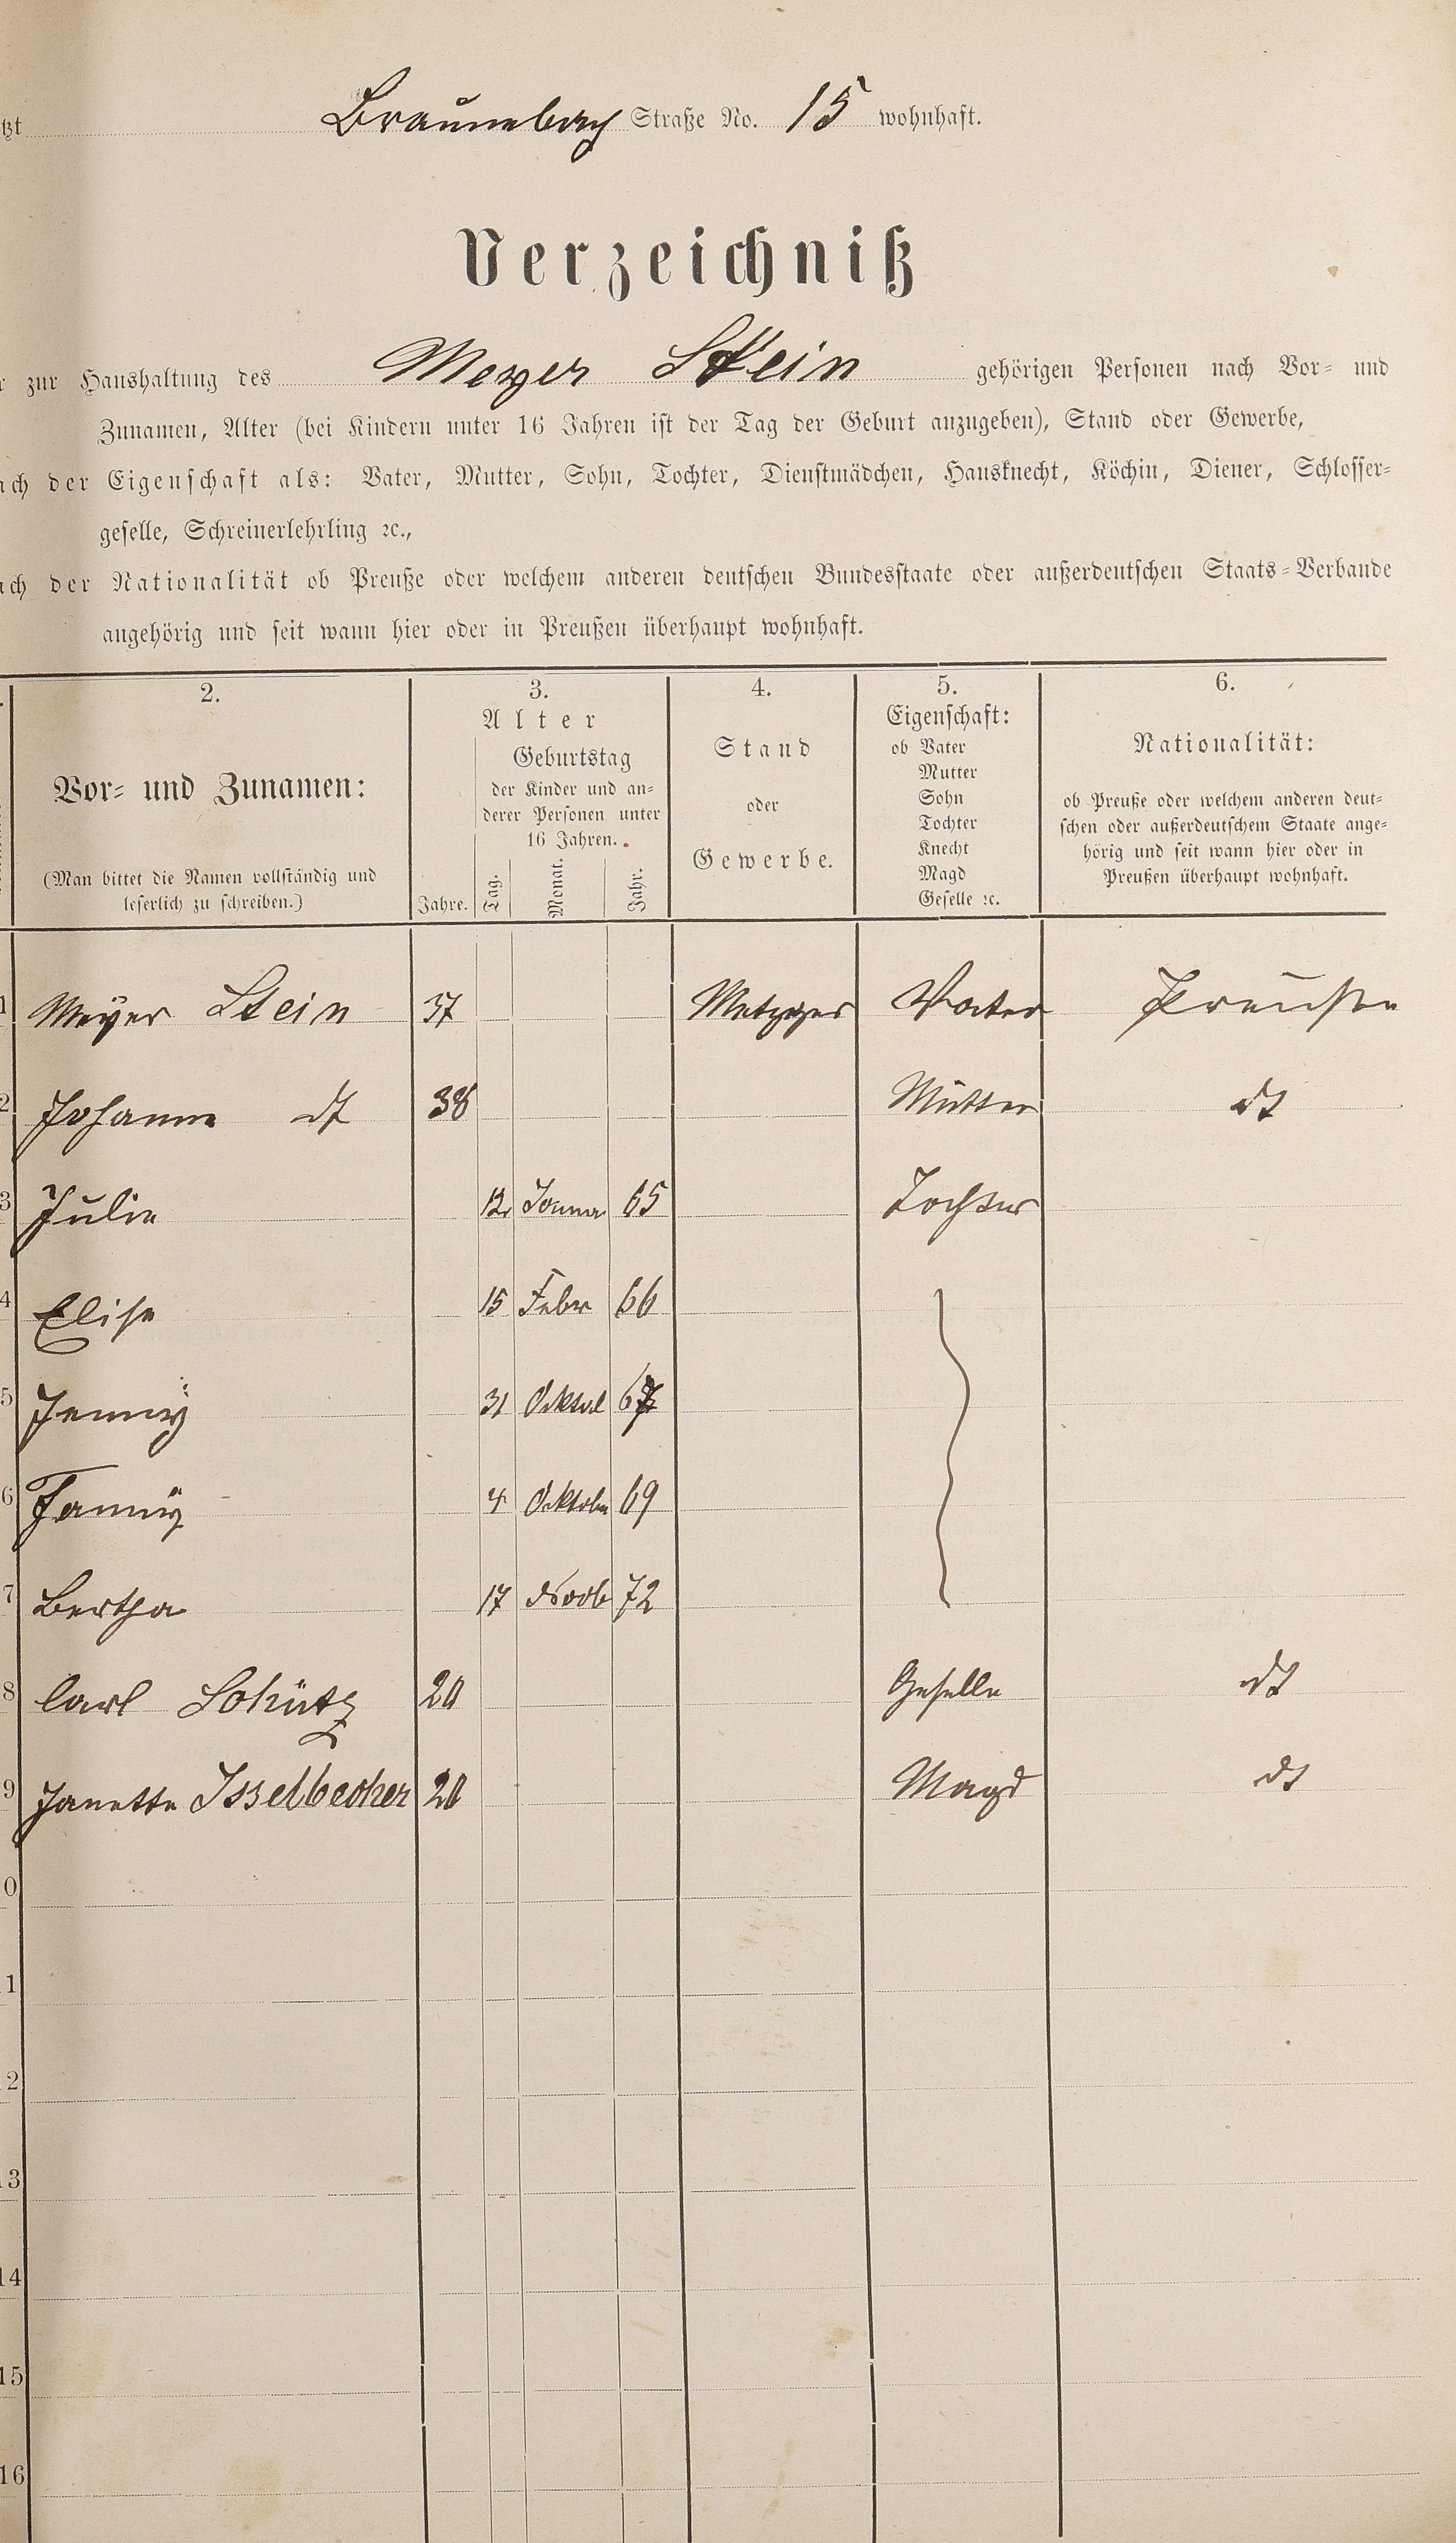 tzt Braunebach Straße No. 15 wohnhaft.
Verzeichniß
r zur Haushaltung des Meyer Stein gehörigen Personen nach Vor- und
Zunamen, Alter (bei Kindern unter 16 Jahren ist der Tag der Geburt anzugeben), Stand oder Gewerbe,
ach der Eigenschaft als: Vater, Mutter, Sohn, Tochter, Dienstmädchen, Hausknecht, Köchin, Diener, Schlosser-
geselle, Schreinerlehrling ꝛc.,
ach der Nationalität ob Preuße oder welchem anderen deutschen Bundesstaate oder außerdeutschen Staats-Verbande
angehörig und seit wann hier oder in Preußen überhaupt wohnhaft.
2.
Vor- und Zunamen:
(Man bittet die Namen vollständig und
leserlich zu schreiben.)
3.
Alter
Jahre.
Geburtstag
der Kinder und an-
derer Personen unter
16 Jahren.
Tag. Monat. Jahr.
4.
Stand
oder
Gewerbe.
5.
Eigenschaft:
ob Vater
Mutter
Sohn
Tochter
Knecht
Magd
Geselle ꝛc.
6.
Nationalität:
ob Preuße oder welchem anderen deut-
schen oder außerdeutschem Staate ange-
hörig und seit wann hier oder in
Preußen überhaupt wohnhaft.
1 Meyer Stein 37 Metzger Vater Preuße
2 Johanne dt 38 Mutter dt
3 Julie 12 Januar 65 Tochter
4 Elise 15 Febr 66
5 Jenny 31 Oktob 67
6 Fanny 4 Oktober 69
7 Bertha 17 Novb 72
8 Carl Schütz 20 Geselle dt
9 Janette Isselbecher 20 Magd dt
0
1
2
13
14
15
16